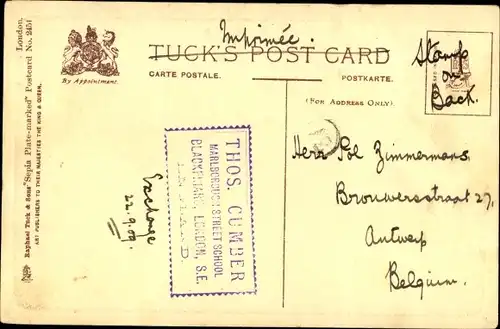 Imprimée.
TUCK'S POST CARD
CARTE POSTALE.
POSTKARTE.
(FOR ADDRESS ONLY).
By Appointment.
Stamp
on
Back.
London.
Raphael Tuck & Sons' "Sepia Plate-marked" Postcard No. 2451
ART PUBLISHERS TO THEIR MAJESTIES THE KING & QUEEN.
Exchange
22.9.09.
THOS. CUMBER
MARLBOROUGH STREET SCHOOL
BLACKFRIARS, LONDON, S.E.
ENGLAND.
Herr Pol Zimmermans,
Brouwersstraat 27,
Antwerp
Belgium.